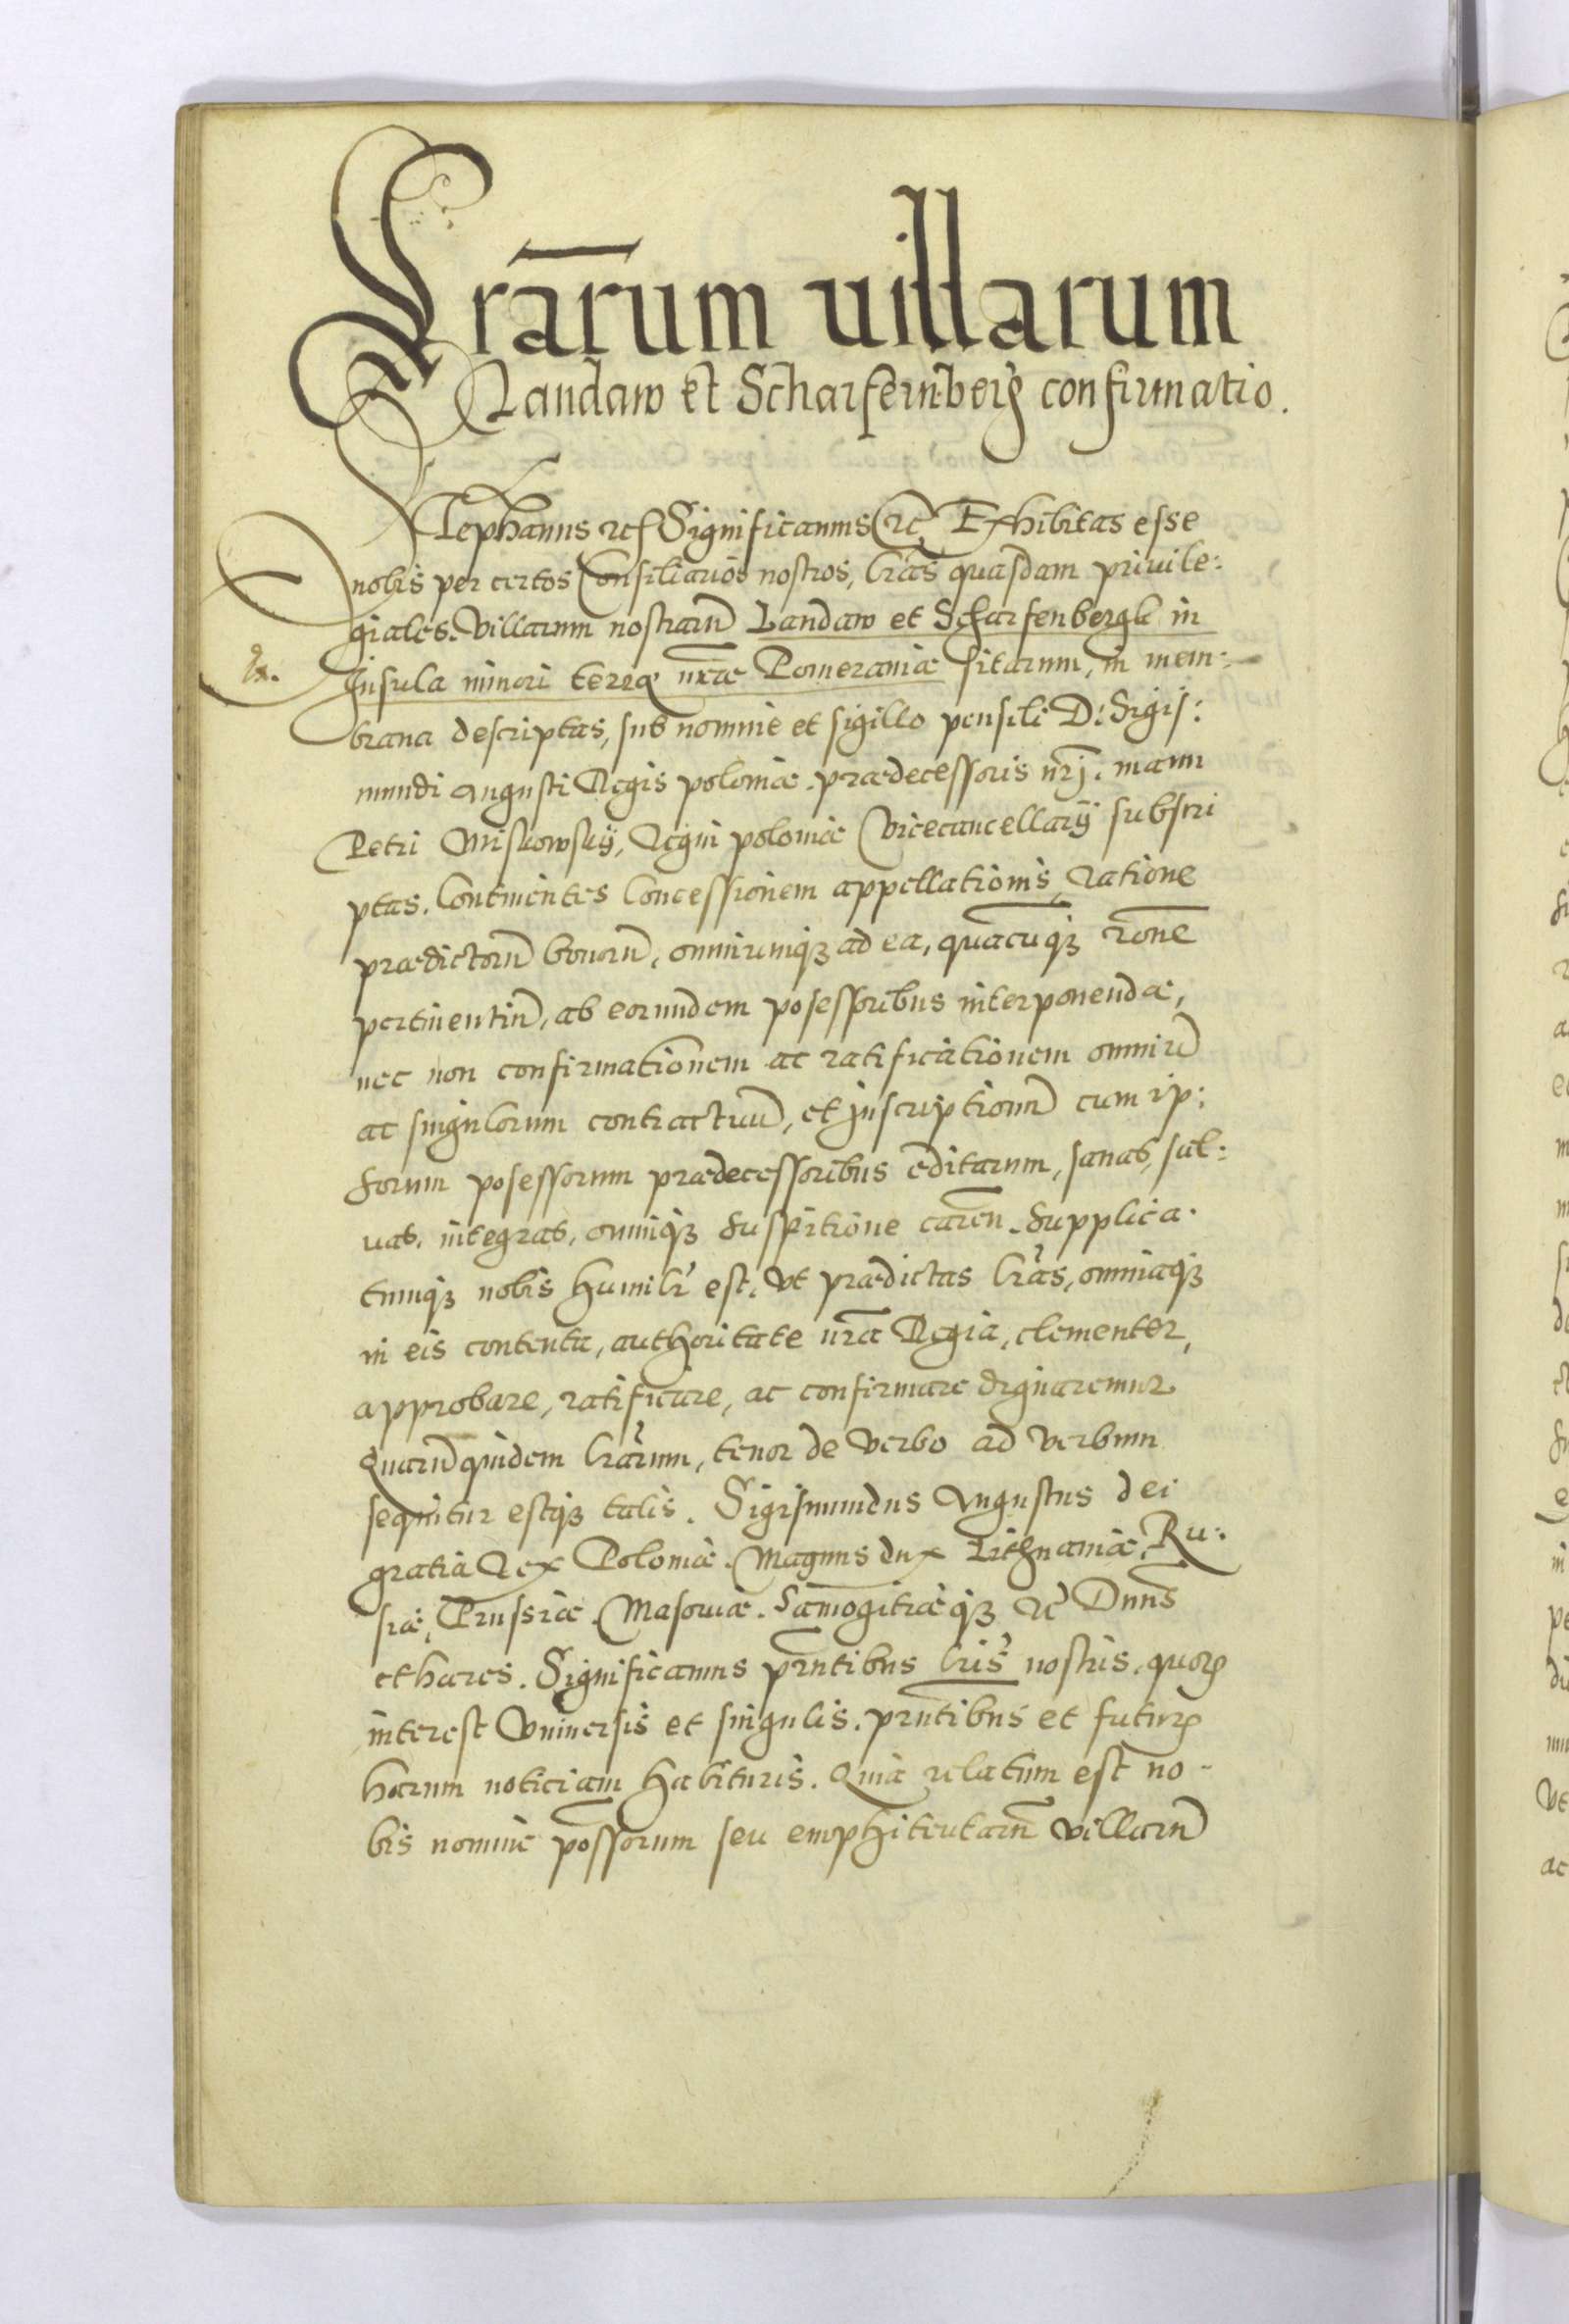 Lrārum uillarum
Landaw et Scharfernberg confirmatio.
Stephanus etc Significamus etc Exhibitas esse
nobis per certos Consiliarios nostros, lrās quasdam priuile:
giales. Villarum nostrarū Landaw et Scharfenbergk in
Insula minori terræ nræ Pomeraniæ sitarum, in mem:
brana descriptas, sub nomine et sigillo pensili D: Sigis:
mundi Augusti Regis poloniæ. prædecessoris nrj. manu
Petri Miskowskij, Regni poloniæ Vicecancellarij subscri
ptas. Continentes Concessionem appellationis, ratione
prædictorū bonorū, omniumqꝫ ad ea, quacūqꝫ rōne
pertinentiū, ab eorundem posessoribus interponendæ,
nec non confirmationem ac ratificationem omniū
ac singulorum contractuū, et Inscriptionū cum ip:
sorum posessorum prædecessoribus editarum, sanas, sal:
uas, integras, omniqꝫ suspitione caren. Supplica:
tumqꝫ nobis humilr est, Vt prædictas lrās, omniaqꝫ
in eis contenta, authoritate nrā Regia, clementer,
approbare, ratificare, ac confirmare dignaremur
Quarūquidem lrārum, tenor de verbo ad verbum
sequitur estqꝫ talis. Sigismundus Augustus dei
gratia Rex Poloniæ. Magnus dux Lithuaniæ, Ru:
siæ, Prussiæ. Masouiæ. Samogitiæqꝫ etc Dnns
et hæres. Significamus prntibus lris nostris, quorꝫ
interest Vniuersis et singulis. prntibus et futurꝫ
harum noticiam habituris. Quia relatum est no-
bis nomine possorum seu emphiteutarū villarū